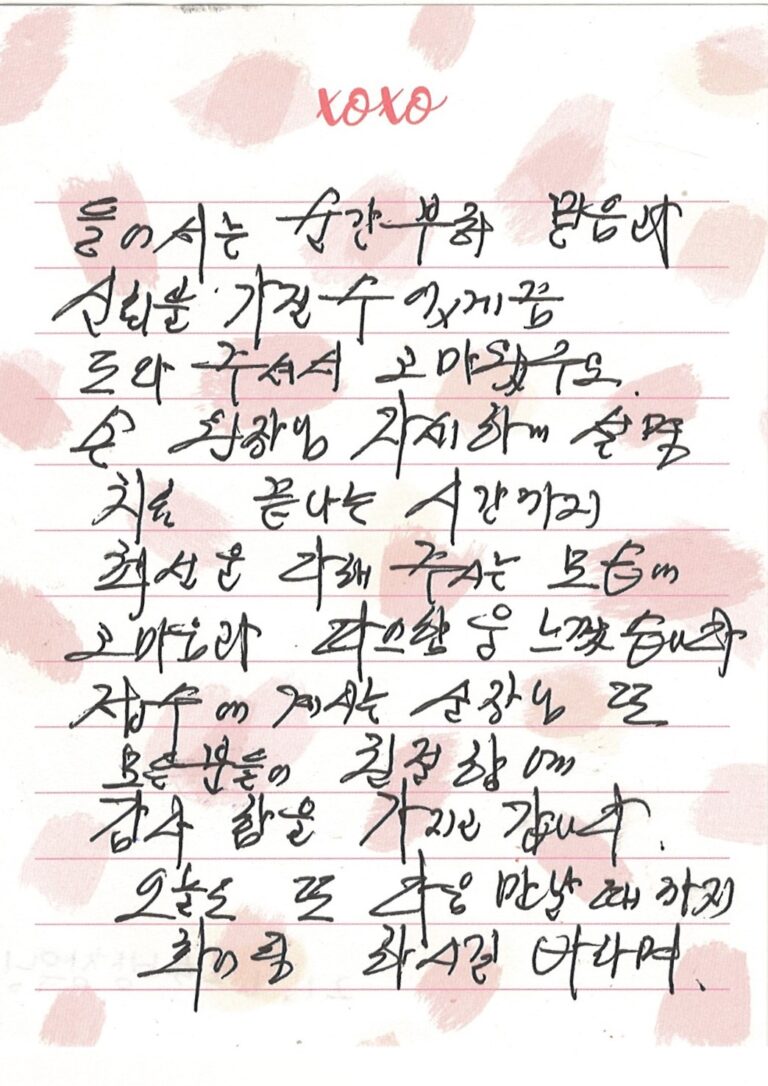 xoxo
들어서는 순간부터 맑음과
신뢰를 가질 수 있게끔
도와 주셔서 고마웠우요.
손 원장님 자세하게 설명
치료 끝나는 시간까지
최선을 다해 주시는 모습에
고마움과 따스함을 느꼈습니다
접수에 계시는 실장님 또
모든분들이 친절함에
감사 함을 가지고 갑니다.
오늘도 또 다음 만날 때 까지
화이팅 하시길 바라며.